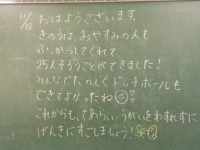 11/18
おはようございます。
きのうは、おやすみの人も
ふっかつしてくれて
25人そろうことができました！
みんなでたのしくドッチボールも
できてよかったね
これからも、てあらい、うがいをわすれずに
げんきにすごしましょう！